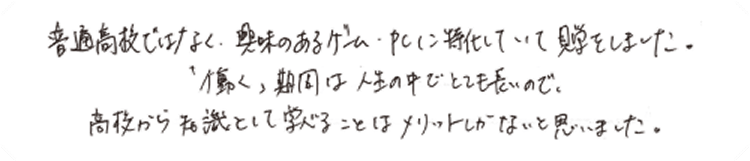 普通高校ではなく、興味のあるゲーム・PCに特化していて見学をしました。
"働く"期間は人生の中でとても長いので、
高校から知識として学べることはメリットしかないと思いました。